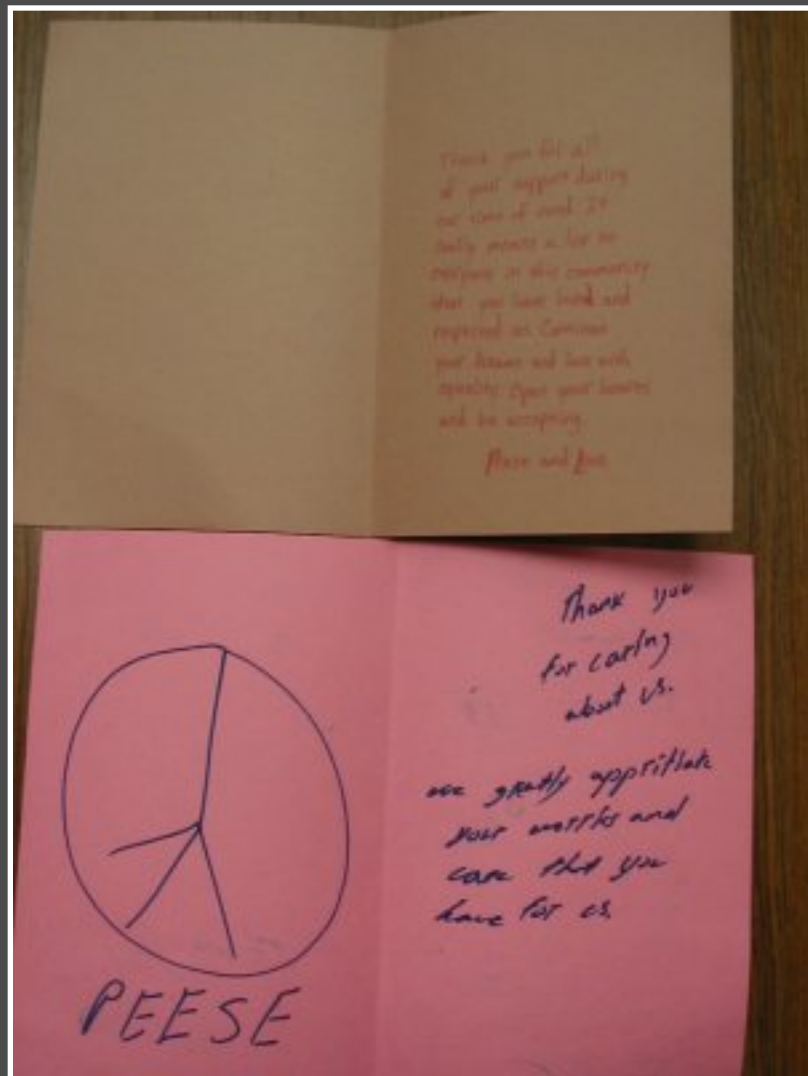 Thank you for all
of your support during
our time of need. It
really means a lot to
everyone in this community
that you have loved and
respected us. Continue
your dreams and live with
equality. Open your hearts
and be accepting.
Peace and Love
Thank you
for caring
about us.
we greatly
your and
care that you
have for us.
PEESE